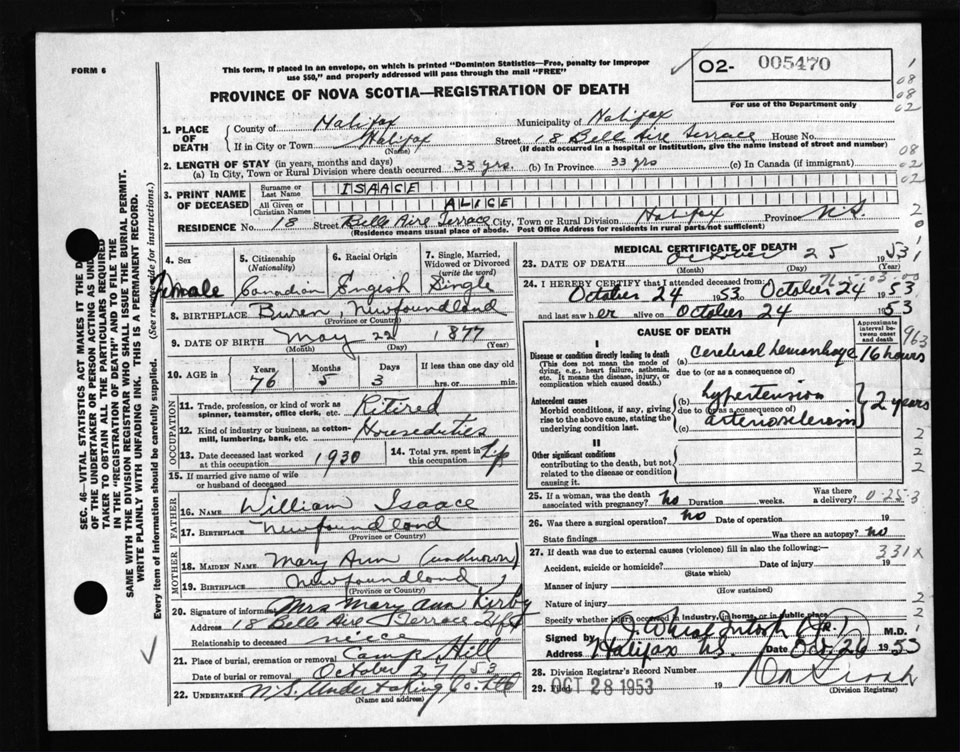 FORM 6
This form, if placed in an envelope, on which is printed "Dominion Statistics—Free, penalty for improper
use $50," and properly addressed will pass through the mail "FREE"
O2- 005470
For use of the Department only
PROVINCE OF NOVA SCOTIA—REGISTRATION OF DEATH
1. PLACE OF DEATH
County of Halifax Municipality of Halifax
If in City or Town Halifax Street 18 Belle Aire Terrace House No.
(Name) (If death occurred in a hospital or institution, give the name instead of street and number)
2. LENGTH OF STAY (in years, months and days)
(a) In City, Town or Rural Division where death occurred 33 yrs. (b) In Province 33 yrs (c) In Canada (if immigrant)
3. PRINT NAME OF DECEASED
Surname or Last Name ISAACE
All Given or Christian Names ALICE
RESIDENCE No. 18 Street Belle Aire Terrace City, Town or Rural Division Halifax Province N.S.
(Residence means usual place of abode. Post Office Address for residents in rural parts not sufficient)
4. Sex
Female
5. Citizenship
(Nationality)
Canadian
6. Racial Origin
Engish
7. Single, Married, Widowed or Divorced
(write the word)
Single
8. BIRTHPLACE Buren, Newfoundland
(Province or Country)
9. DATE OF BIRTH May 22 1877
(Month) (Day) (Year)
10. AGE in Years Months Days If less than one day old
76 5 3 hrs. or min.
OCCUPATION
11. Trade, profession, or kind of work as spinner, teamster, office clerk, etc. Ritired
12. Kind of industry or business, as cotton-mill, lumbering, bank, etc. Housedities
13. Date deceased last worked at this occupation 1930 14. Total yrs. spent in this occupation
15. If married give name of wife or husband of deceased
FATHER
16. NAME William Isaace
17. BIRTHPLACE Newfoundland
(Province or Country)
MOTHER
18. MAIDEN NAME Mary Ann (unknown)
19. BIRTHPLACE Newfoundland
(Province or Country)
20. Signature of informant Mrs Mary Ann Kirby
Address 18 Belle Aire Terrace Hfx
Relationship to deceased niece
21. Place of burial, cremation or removal Camp Hill
October 27 1953
22. UNDERTAKER N.S. Undertaking Co. Ltd
(Name and address)
MEDICAL CERTIFICATE OF DEATH
23. DATE OF DEATH October 25 1953
(Month) (Day) (Year)
24. I HEREBY CERTIFY that I attended deceased from
October 24 1953 to October 24 1953
and last saw her alive on October 24 1953
CAUSE OF DEATH
Approximate interval between onset and death
I
Disease or condition directly leading to death
(This does not mean the mode of dying, e.g., heart failure, asthenia, etc. It means the disease, injury, or complication which caused death.)
(a) cerebral hemorrhage 16 hours
due to (or as a consequence of)
Antecedent causes
Morbid conditions, if any, giving rise to the above cause, stating the underlying condition last.
(b) hypertension
due to (or as a consequence of)
(c) arteriosclerosis
2 years
II
Other significant conditions
contributing to the death, but not related to the disease or condition causing it.
25. If a woman, was the death associated with pregnancy? no Duration weeks. Was there a delivery?
26. Was there a surgical operation? no Date of operation 19
State findings Was there an autopsy? no
27. If death was due to external causes (violence) fill in also the following:—
Accident, suicide or homicide? Date of injury 19
(State which)
Manner of injury
(How sustained)
Nature of injury
Specify whether injury occurred in industry, in home, or in public place
Signed by M.D.
Address Halifax N.S. Date Oct. 26 1953
28. Division Registrar's Record Number
29. Filed OCT 28 1953 19
(Division Registrar)
SEC. 46—VITAL STATISTICS ACT MAKES IT THE
OF THE UNDERTAKER OR PERSON ACTING AS
TAKER TO OBTAIN ALL THE PARTICULARS REQUIRED
IN THE "REGISTRATION OF DEATH" AND TO FILE THE
SAME WITH THE DIVISION REGISTRAR WHO SHALL ISSUE THE BURIAL PERMIT.
WRITE PLAINLY WITH UNFADING INK. THIS IS A PERMANENT RECORD.
Every item of information should be carefully supplied. (See reverse side for instructions.)